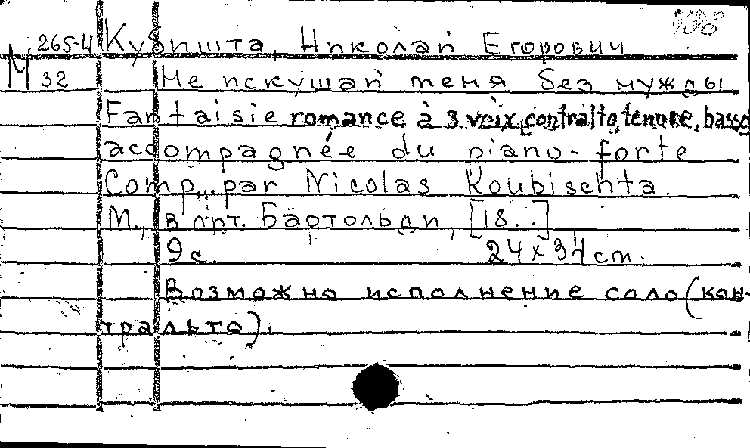 М 265-4 Кубишта, Николай Егорович
32 Не искушай меня без нужды
Fantaisie romance à 3 voix, contralto, tenore, basso
accompagnée du piano-forte
Comp. par Nicolas Koubischta
М., в лит. Бартольди, [18..]
9 с. 24 х 34 cm.
Возможно исполнение соло (кон-
тральто).